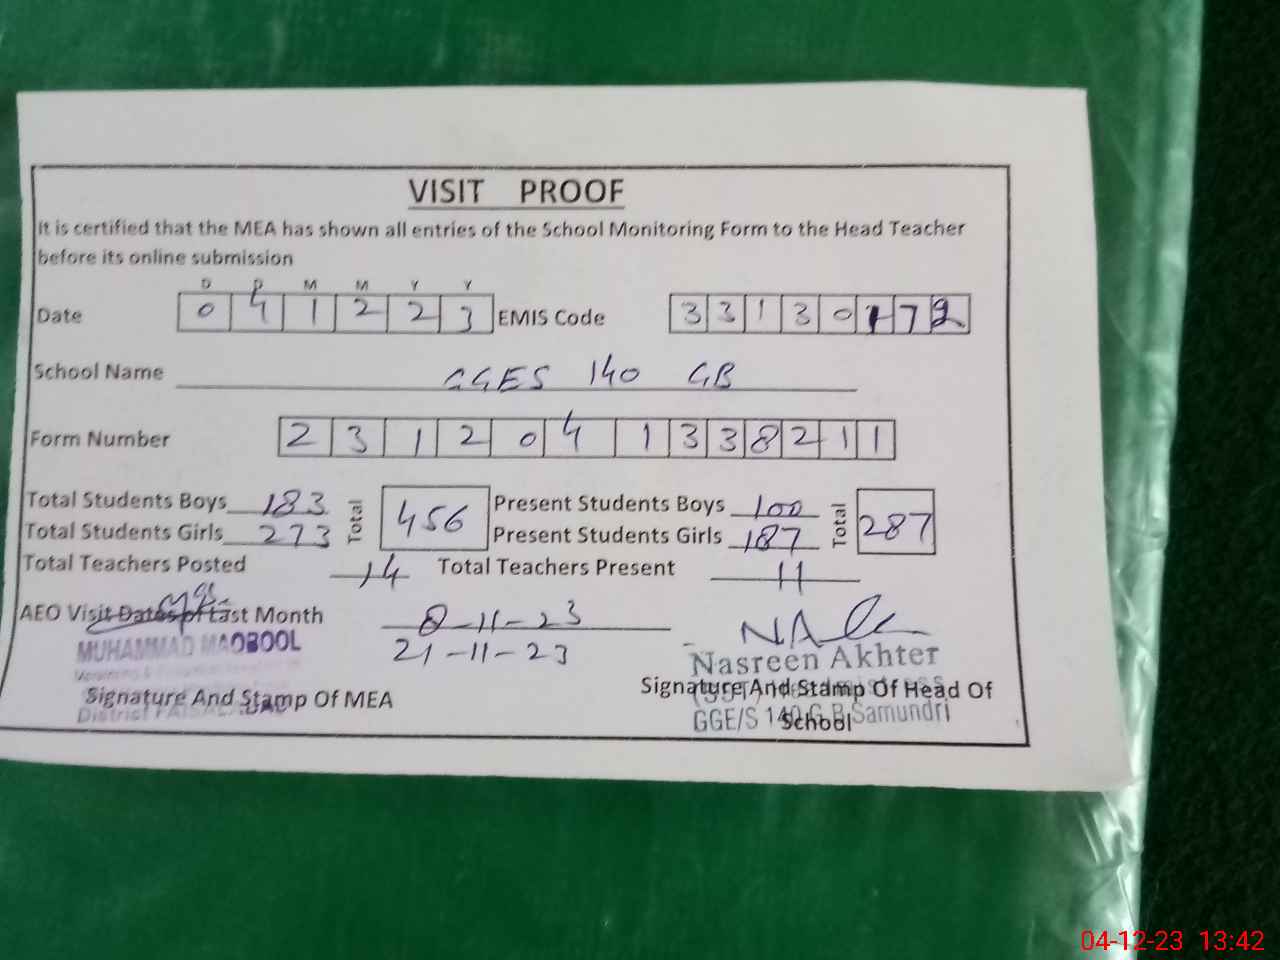 VISIT PROOF
It is certified that the MEA has shown all entries of the School Monitoring Form to the Head Teacher
before its online submission
D D M M Y Y
Date 0 4 1 2 2 3 EMIS Code 3 3 1 3 0 1 7 2
School Name GGES 140 GB
Form Number 2 3 1 2 0 4 1 3 3 8 2 1 1
Total Students Boys 183 Total 456 Present Students Boys 100 Total 287
Total Students Girls 273 Present Students Girls 187
Total Teachers Posted 14 Total Teachers Present 11
AEO Visit Dates of Last Month 8-11-23
21-11-23
MUHAMMAD MAQBOOL
Signature And Stamp Of MEA
District FAISALABAD
Nasreen Akhter
Signature And Stamp Of Head Of
School
GGE/S 140 G.B Samundri
04-12-23 13:42